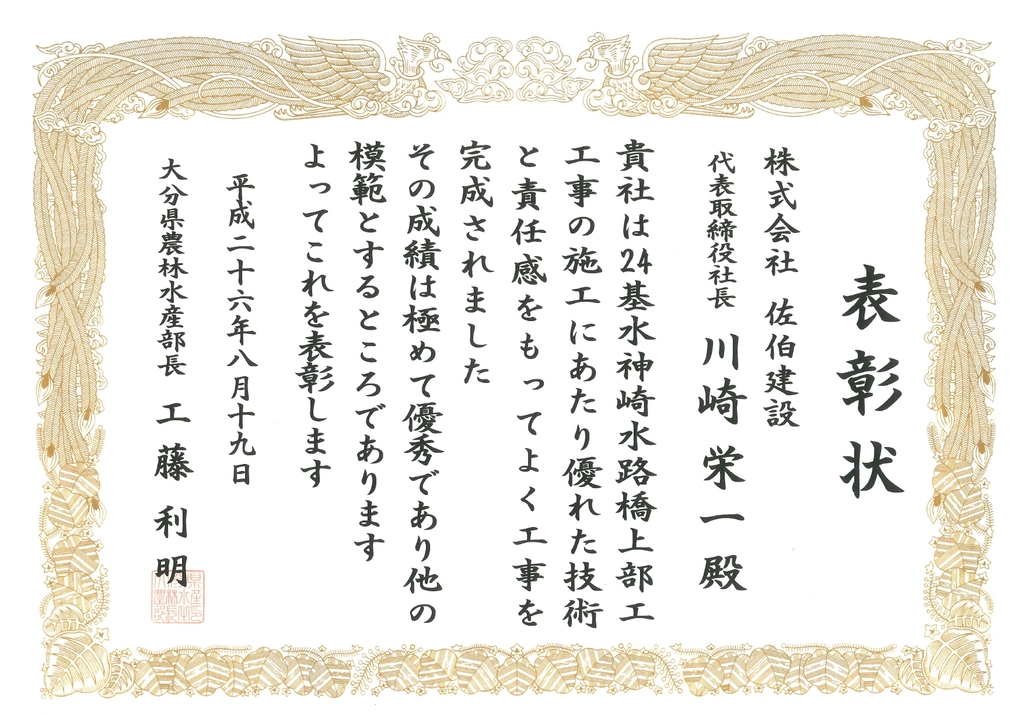 表彰状
株式会社 佐伯建設
代表取締役社長 川崎 栄一 殿
貴社は24基水神崎水路橋上部工
工事の施工にあたり優れた技術
と責任感をもってよく工事を
完成されました
その成績は極めて優秀であり他の
模範とするところであります
よってこれを表彰します
平成二十六年八月十九日
大分県農林水産部長 工藤利明